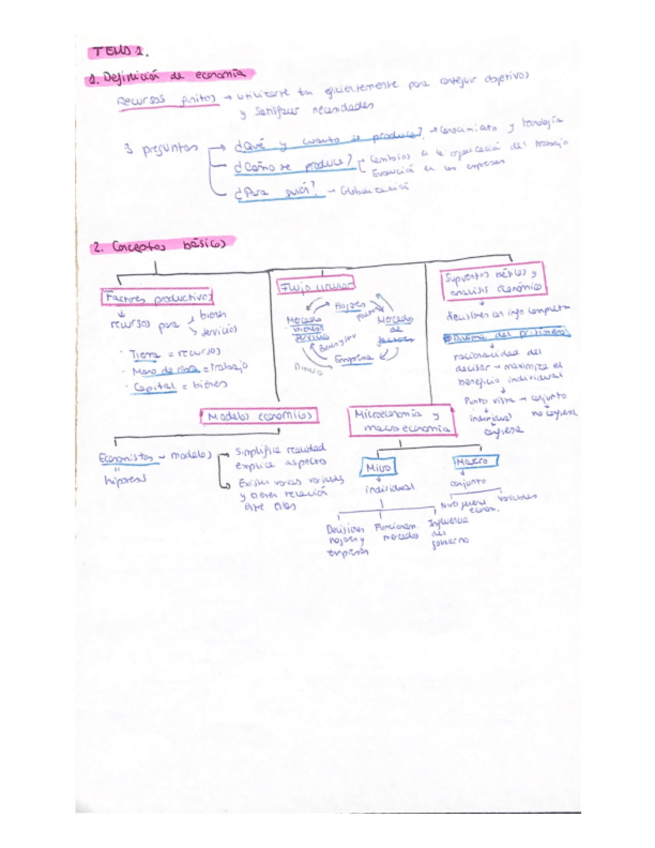 TEMA 1.
1. Definición de economía
Recursos finitos → utilizarlos eficientemente para conseguir objetivos
y satisfacer necesidades
3 preguntas
¿Qué y cuanto se produce? → Conocimiento y tecnología
¿Cómo se produce? Cambios en la organización del trabajo
Evolución en las empresas
¿Para quién? → Globalización
2. Conceptos básicos
Factores productivos
recursos para bienes
servicios
· Tierra = recursos
· Mano de obra = trabajo
· Capital = bienes
Flujo circular
Hogares
Mercado
bienes
servicios
Mercado
de
factores
Empresa
Dinero
Supuestos básicos y
análisis económico
decisiones con info completa
Dilema del prisionero
racionalidad del
decisor → maximiza el
beneficio individual
Punto vista → conjunto
individual
no coopera
coopera
Modelos económicos
Economistas → modelos
"
hipótesis
Simplifica realidad
explica aspectos
Existen varias variables
y tienen relación
entre ellas
Microeconomía y
macroeconomía
Micro
individual
Decisiones
hogares y
empresas
Funcionam.
mercados
Influencia
del
gobierno
Macro
conjunto
variables
econom.